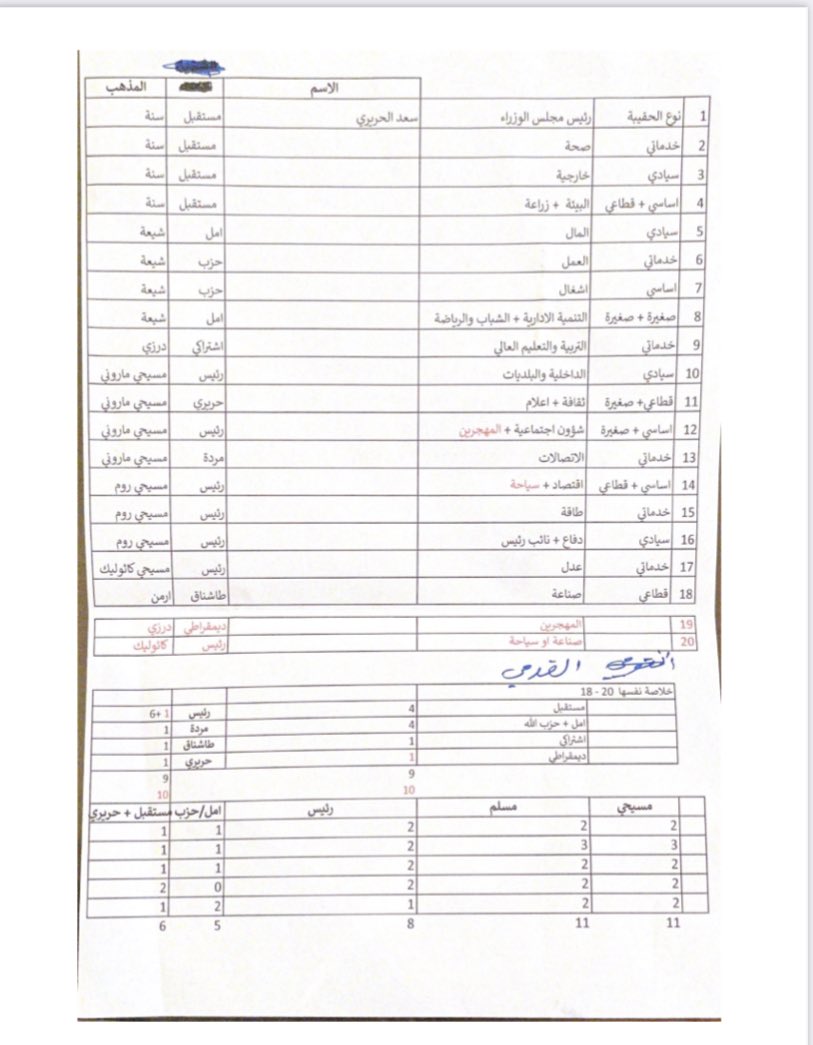 الاسم المذهب
1 نوع الحقيبة رئيس مجلس الوزراء سعد الحريري مستقبل سنة
2 خدماتي صحة مستقبل سنة
3 سيادي خارجية مستقبل سنة
4 اساسي + قطاعي البيئة + زراعة مستقبل سنة
5 سيادي المال امل شيعة
6 خدماتي العمل حزب شيعة
7 اساسي اشغال حزب شيعة
8 صغيرة + صغيرة التنمية الادارية + الشباب والرياضة امل شيعة
9 خدماتي التربية والتعليم العالي اشتراكي درزي
10 سيادي الداخلية والبلديات رئيس مسيحي ماروني
11 قطاعي+ صغيرة ثقافة + اعلام حريري مسيحي ماروني
12 اساسي + صغيرة شؤون اجتماعية + المهجرين رئيس مسيحي ماروني
13 خدماتي الاتصالات مردة مسيحي ماروني
14 اساسي + قطاعي اقتصاد + سياحة رئيس مسيحي روم
15 خدماتي طاقة رئيس مسيحي روم
16 سيادي دفاع + نائب رئيس رئيس مسيحي روم
17 خدماتي عدل رئيس مسيحي كاثوليك
18 قطاعي صناعة طاشناق ارمن
19 المهجرين ديمقراطي درزي
20 صناعة او سياحة رئيس كاثوليك
خلاصة نفسها 20 - 18
مستقبل 4 رئيس 6+ 1
امل + حزب الله 4 مردة 1
اشتراكي 1 طاشناق 1
ديمقراطي 1 حريري 1
9 9
10 10
مسيحي مسلم رئيس امل/حزب مستقبل + حريري
2 2 2 1 1
3 3 2 1 1
2 2 2 1 1
2 2 2 0 2
2 2 1 2 1
11 11 8 5 6